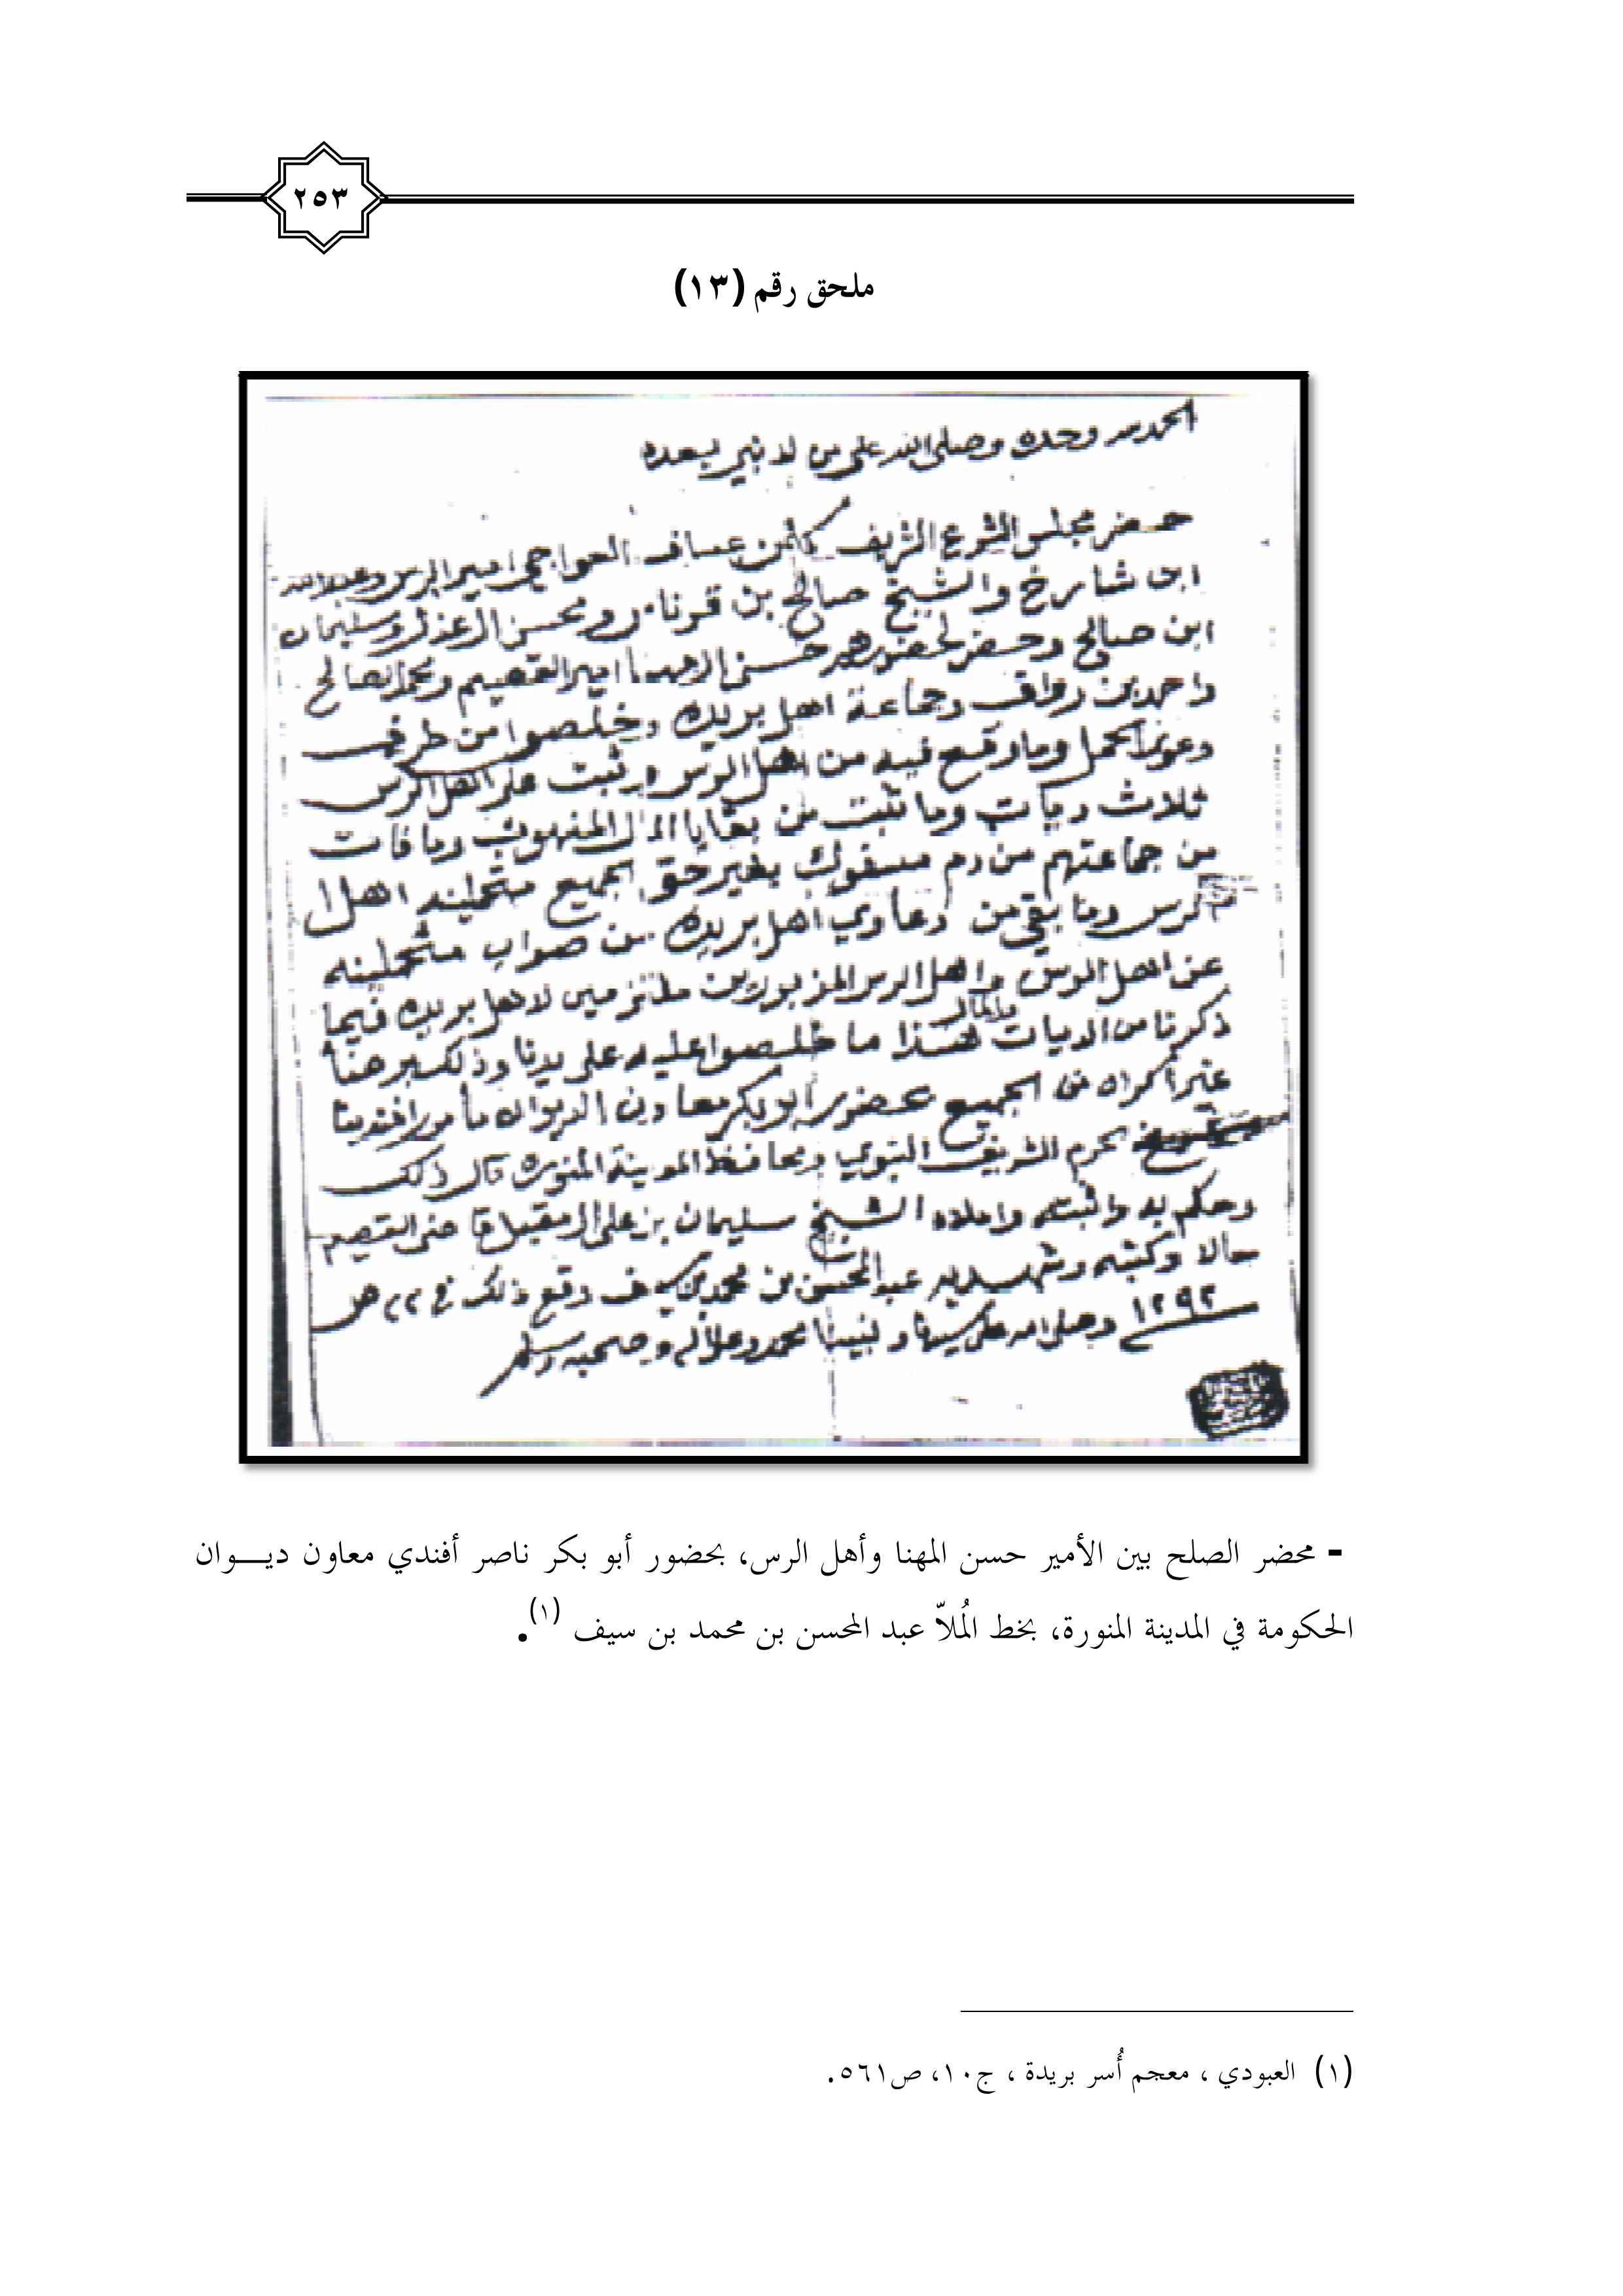 ٢٥٣
ملحق رقم (١٣)
الحمد لله وحده وصلى الله على من لا نبي بعده
حضر مجلس الشرع الشريف بن عساف العواجي امير الرس وعبدالله
ابن شارخ والشيخ صالح بن قرناس ومحسن وسليمان
ابن صالح وحضر لحضورهم حسن المهنا امير القصيم ومحمد الصالح
واحمد بن رواف وجماعة اهل بريده وخلصوا من طرف
وما وقع فيه من اهل الرس وثبت على اهل الرس
ثلاث ديات وما ثبت من بقايا المال المنهوب وما فات
من جماعتهم من دم مسفوك بغير حق الجميع متحلينه اهل ا
لرس وما بقي من دعاوي اهل بريده من صواب متحملينه
عن اهل الرس واهل الرس المزبورين ملتزمين لاهل بريده فيما
ذكرنا من الديات والمال هذا ما خلصوا عليه على يدنا وذلك برضا
غير اكراه من الجميع بحضور ابو بكر معاون الديوان مأمور افندينا
حرم الشريف النبوي ومحافظ المدينة المنوره قال ذلك
وحكم به واثبته واملاه الشيخ سليمان بن علي المقبل قاضي القصيم
حالا وكتبه وشهد به عبد المحسن بن محمد بن سيف وقع ذلك في ٢٢ ص
١٢٩٢ وصلى الله على سيدنا ونبينا محمد وعلى آله وصحبه وسلم
- محضر الصلح بين الأمير حسن المهنا وأهل الرس، بحضور أبو بكر ناصر أفندي معاون ديـــوان
الحكومة في المدينة المنورة، بخط المُلاّ عبد المحسن بن محمد بن سيف (١).
(١) العبودي ، معجم أُسر بريدة ، ج١٠، ص٥٦١.